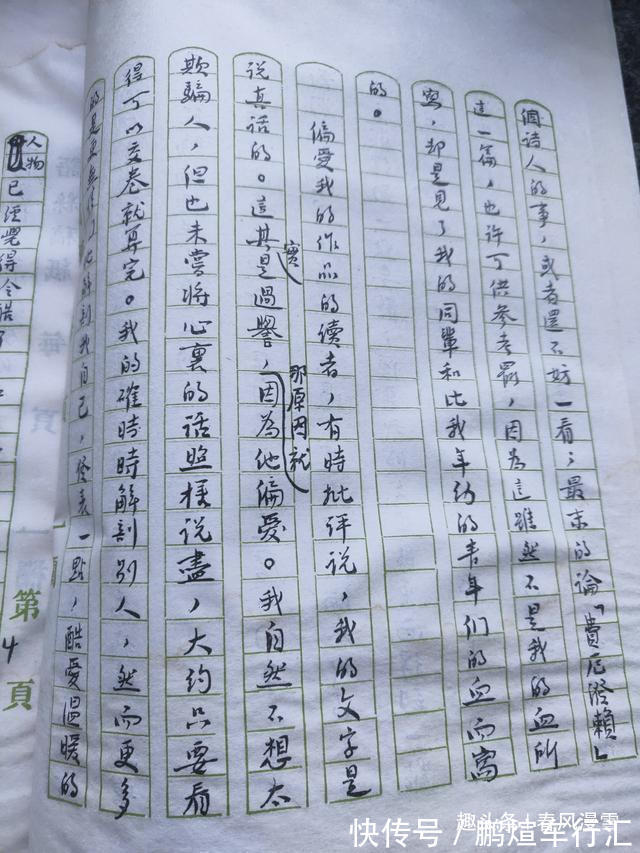 個詩人的事，或者還不妨一看；最末的論「費厄潑賴」
這一篇，也許可供參考罷，因為這雖然不是我的血所
寫，却是見了我的同輩和比我年幼的青年們的血而寫
的。
偏愛我的作品的讀者，有時批評說，我的文字是
說真話的。這其實是過譽，那原因就因為他偏愛。我自然不想太
欺騙人，但也未嘗將心裏的話照樣說盡，大約只要看
得可以交卷就算完。我的確時時解剖別人，然而更多
的是更無情面地解剖我自己，發表一點，酷愛溫暖的
第4頁
人物已經覺得冷酷了
趣头条 + 春风漫雪
快传号 / 鹏煊车行汇